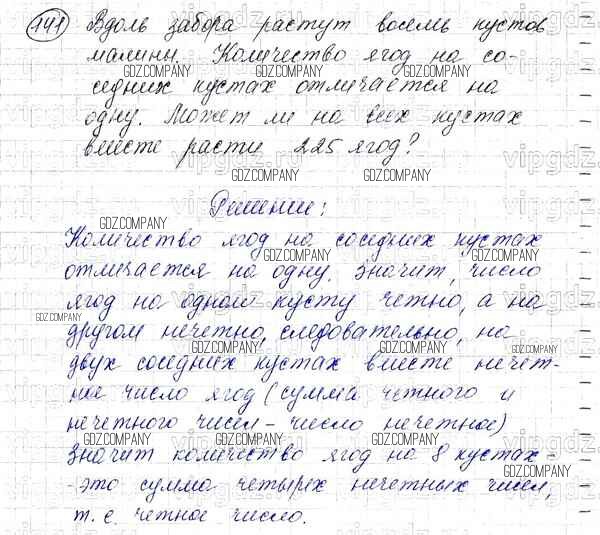 141 Вдоль забора растут восемь кустов
малины. Количество ягод на со-
GDZ.COMPANY GDZ.COMPANY GDZ.COMPANY
седних кустах отличается на
одну. Может ли на всех кустах
вместе расти 225 ягод?
GDZ.COMPANY GDZ.COMPANY
Решение:
GDZ.COMPANY
Количество ягод на соседних кустах
GDZ.COMPANY GDZ.COMPANY
отличается на одну. Значит, число
ягод на одном кусту четно, а на
GDZ.COMPANY
другом нечетно, следовательно, на
GDZ.COMPANY GDZ.COMPANY GDZ.COMPANY
двух соседних кустах вместе нечет-
ное число ягод (сумма четного и
нечетного чисел - число нечетное)
GDZ.COMPANY GDZ.COMPANY GDZ.COMPANY
Значит количество ягод на 8 кустах-
GDZ.COMPANY
- это сумма четырех нечетных чисел,
т. е. четное число.
GDZ.COMPANY GDZ.COMPANY GDZ.COMPANY